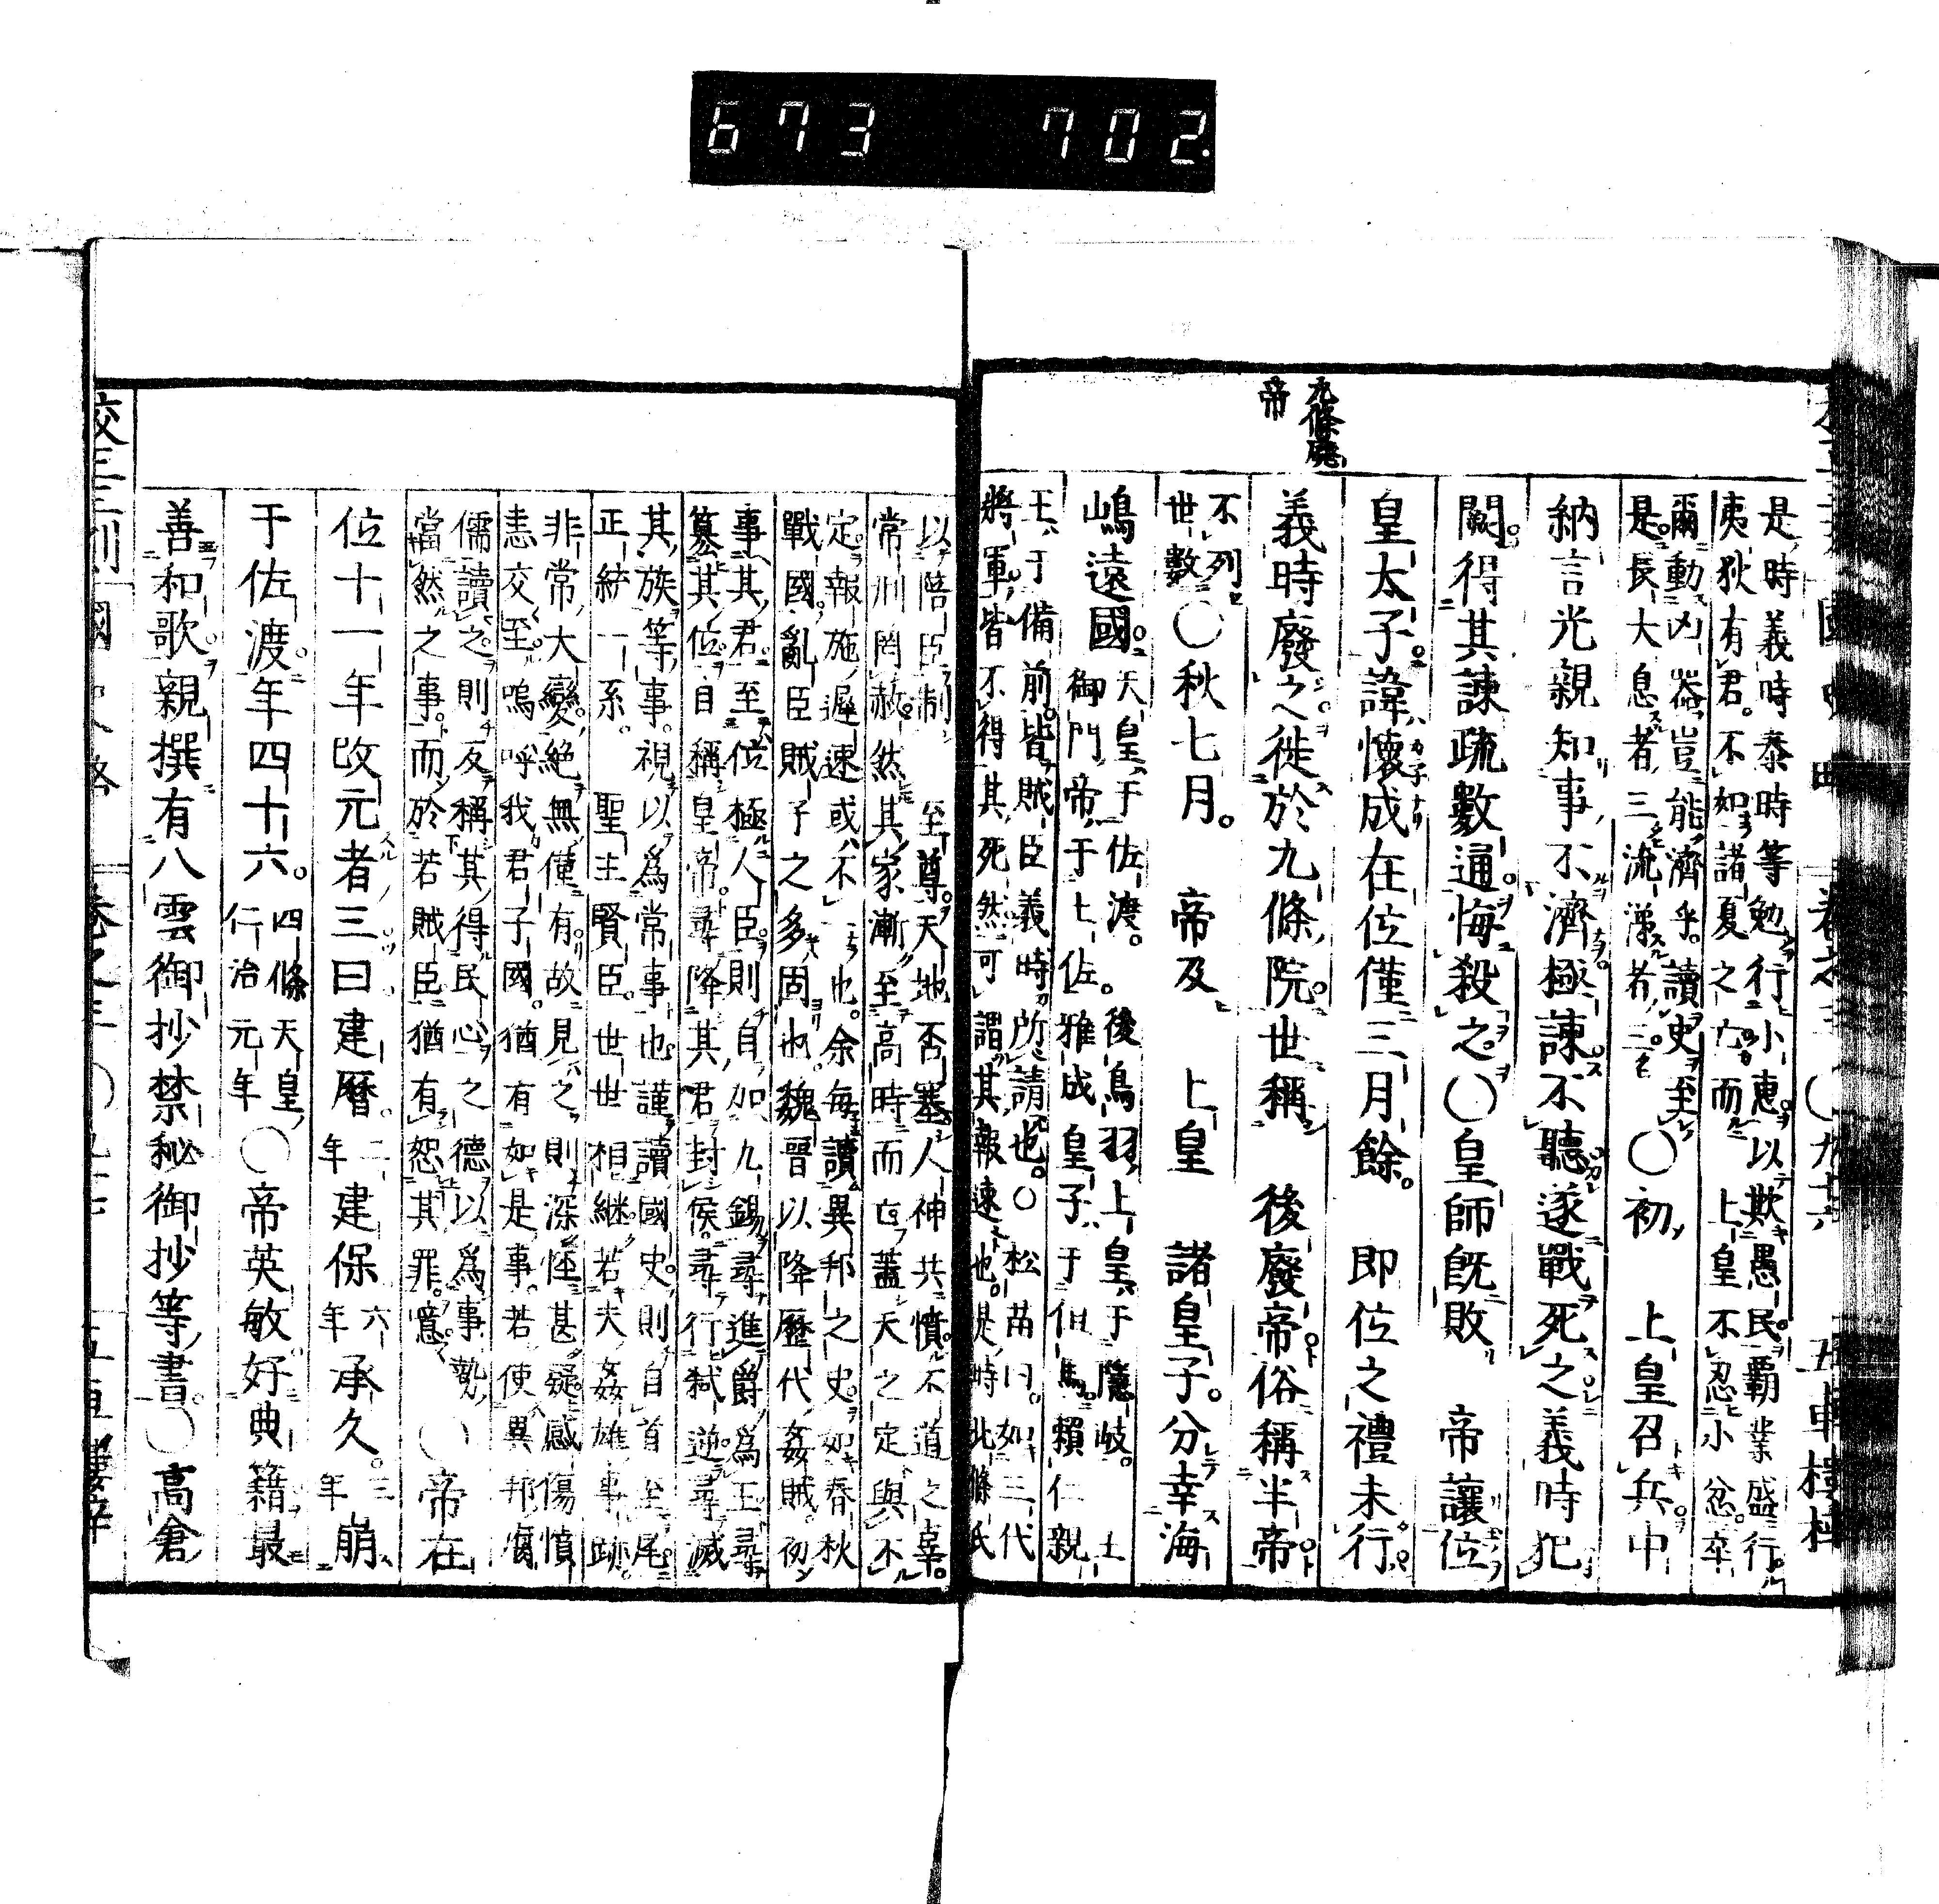 673 702.
九條廢
帝
是時義時泰時等勉行小惠以欺愚民覇業盛行
夷狄有君不如諸夏之亡而 上皇不忍小忿卒
爾動凶器豈能濟乎讀史至
是長大息者三流涕者三 〇初 上皇召兵中
納言光親知事不濟極諫不聽遂戰死之義時犯
闕得其諫疏數通悔殺之〇皇師旣敗 帝讓位
皇太子諱懷成在位僅三月餘 即位之禮未行
義時廢之徙於九條院世稱 後廢帝俗稱半帝
不列
世數〇秋七月 帝及 上皇 諸皇子分幸海
嶋遠國天皇于佐渡。後鳥羽上皇于隱岐。土
御門帝于土佐。雅成皇子于但馬。賴仁親
王于備前。皆賊臣義時所請也。〇松苗曰。如三代
將軍皆不得其死然可謂其報速也。是時北條氏
以陪臣制 至尊。天地否塞人神共憤不道之辜。
常刑罔赦。然其家漸至高時而亡蓋天之定與不
定。報施遲速或不一也。余每讀異邦之史。如春秋
戰國。亂臣賊子之多固也。魏晉以降歷代姦賊。初
事其君。至位極人臣。則自加九錫尋進爵爲王尋
簒其位。自稱皇帝。尋降其君封侯。尋行弑逆。尋滅
其族等事。視以爲常事也。謹讀國史。則自首至尾
正統一系。 聖主賢臣。世世相繼。若夫姦雄事跡。
非常大變。絶無僅有。故見之則深怪甚疑感傷憤
恚交至。嗚呼我君子國。猶有如是事。若使異邦腐
儒讀之。則反稱其得民心之德以爲事勢
當然之事。而於若賊臣猶有恕其罪。噫 〇 帝在
位十一年改元者三曰建曆二
年建保六
年承久三
年崩
于佐渡年四十六。四條天皇
仁治元年〇帝英敏好典籍最
善和歌親撰有八雲御抄禁秘御抄等書〇高倉